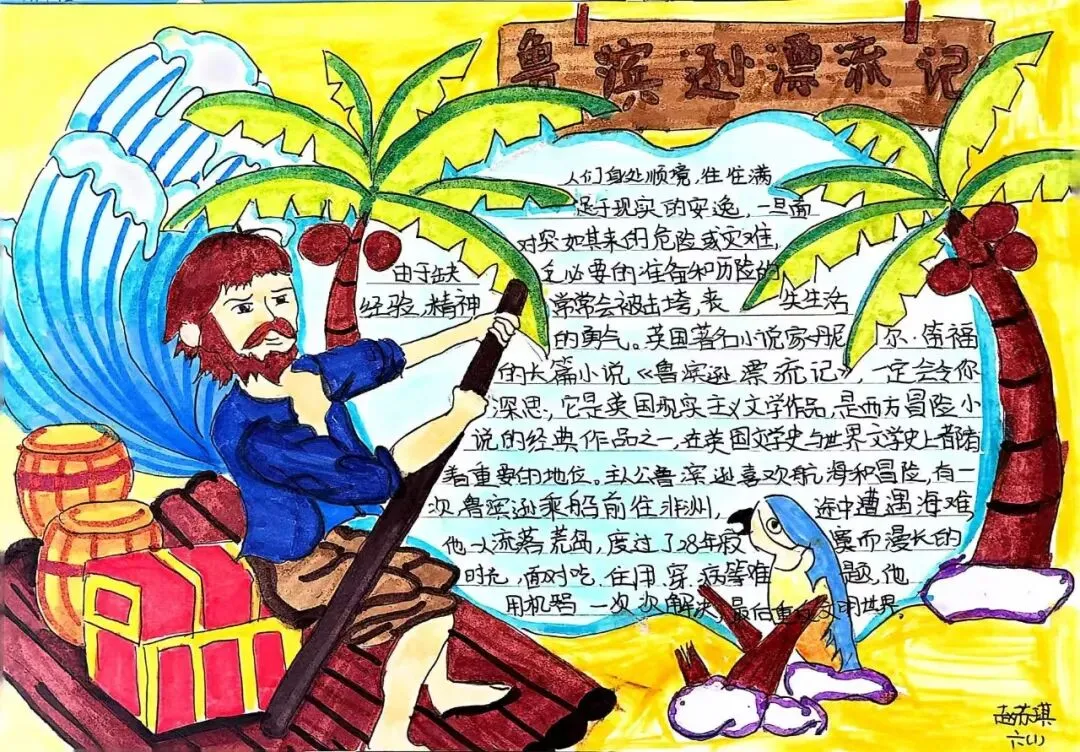 鲁滨逊漂流记
人们身处顺境,往往满
足于现实的安逸,一旦面
对突如其来的危险或灾难,
由于缺乏必要的准备和历险的
经验,精神常常会被击垮,丧失生活
的勇气。英国著名小说家丹尼尔·笛福
的长篇小说《鲁滨逊漂流记》,一定会令你
深思,它是英国现实主义文学作品,是西方冒险小
说的经典作品之一,在英国文学史与世界文学史上都有
着重要的地位。主人公鲁滨逊喜欢航海和冒险,有一
次,鲁滨逊乘船前往非洲,途中遭遇海难
他一人流落荒岛,度过了28年寂寞而漫长的
时光,面对吃、住、用、穿、病等难题,他
用机智一次次解决,最后重返文明世界.
六(1)